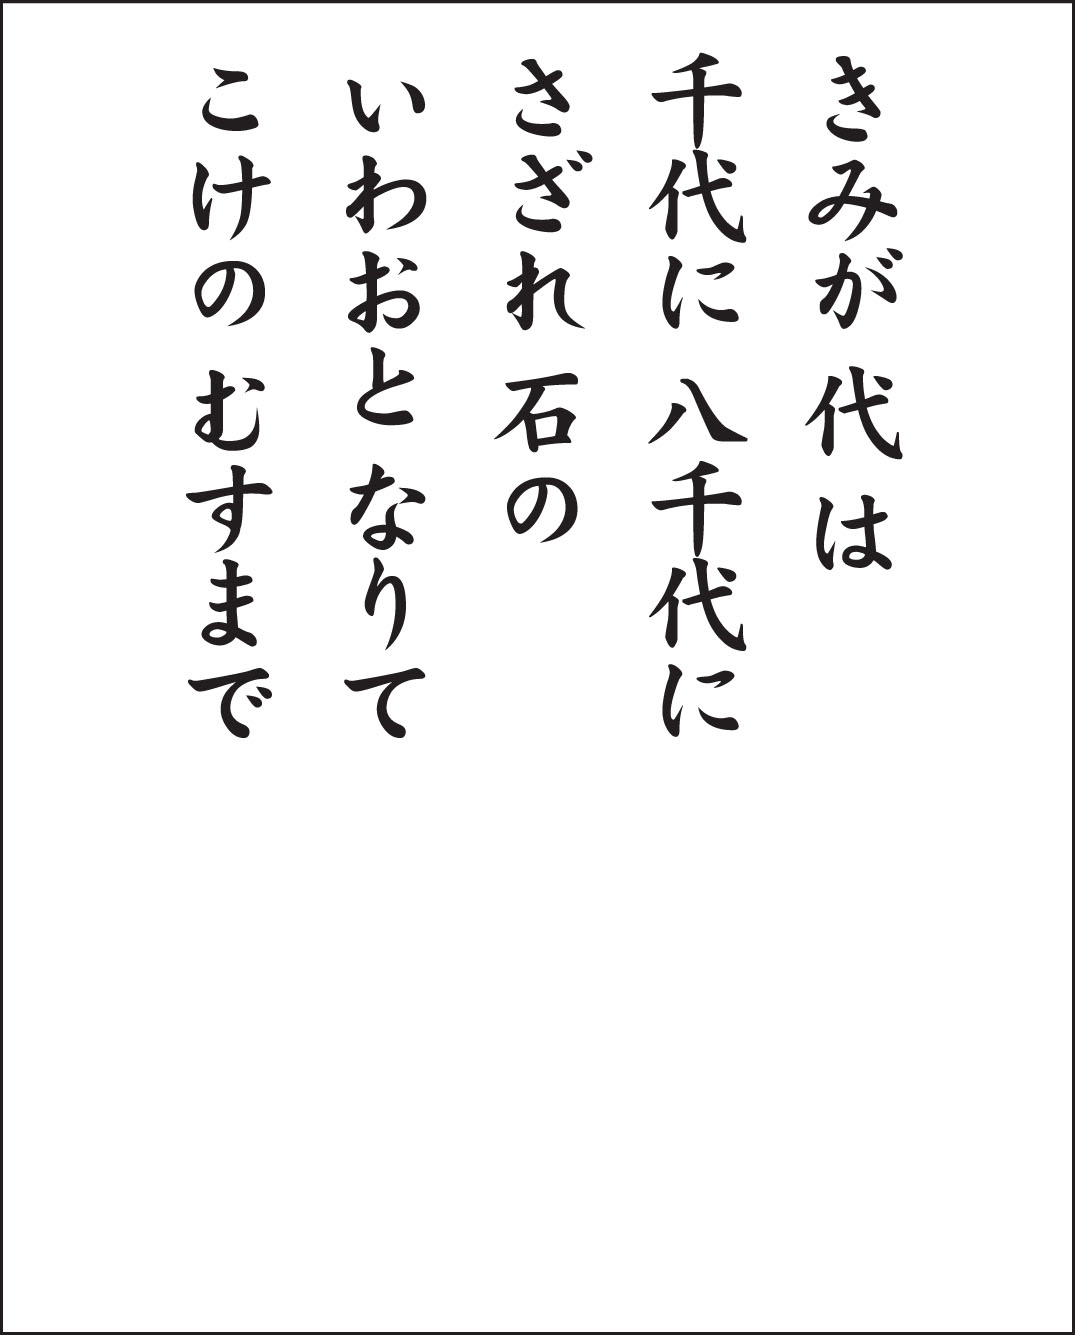 きみが 代 は
千代に 八千代に
さざれ 石の
いわおと なりて
こけの むすまで